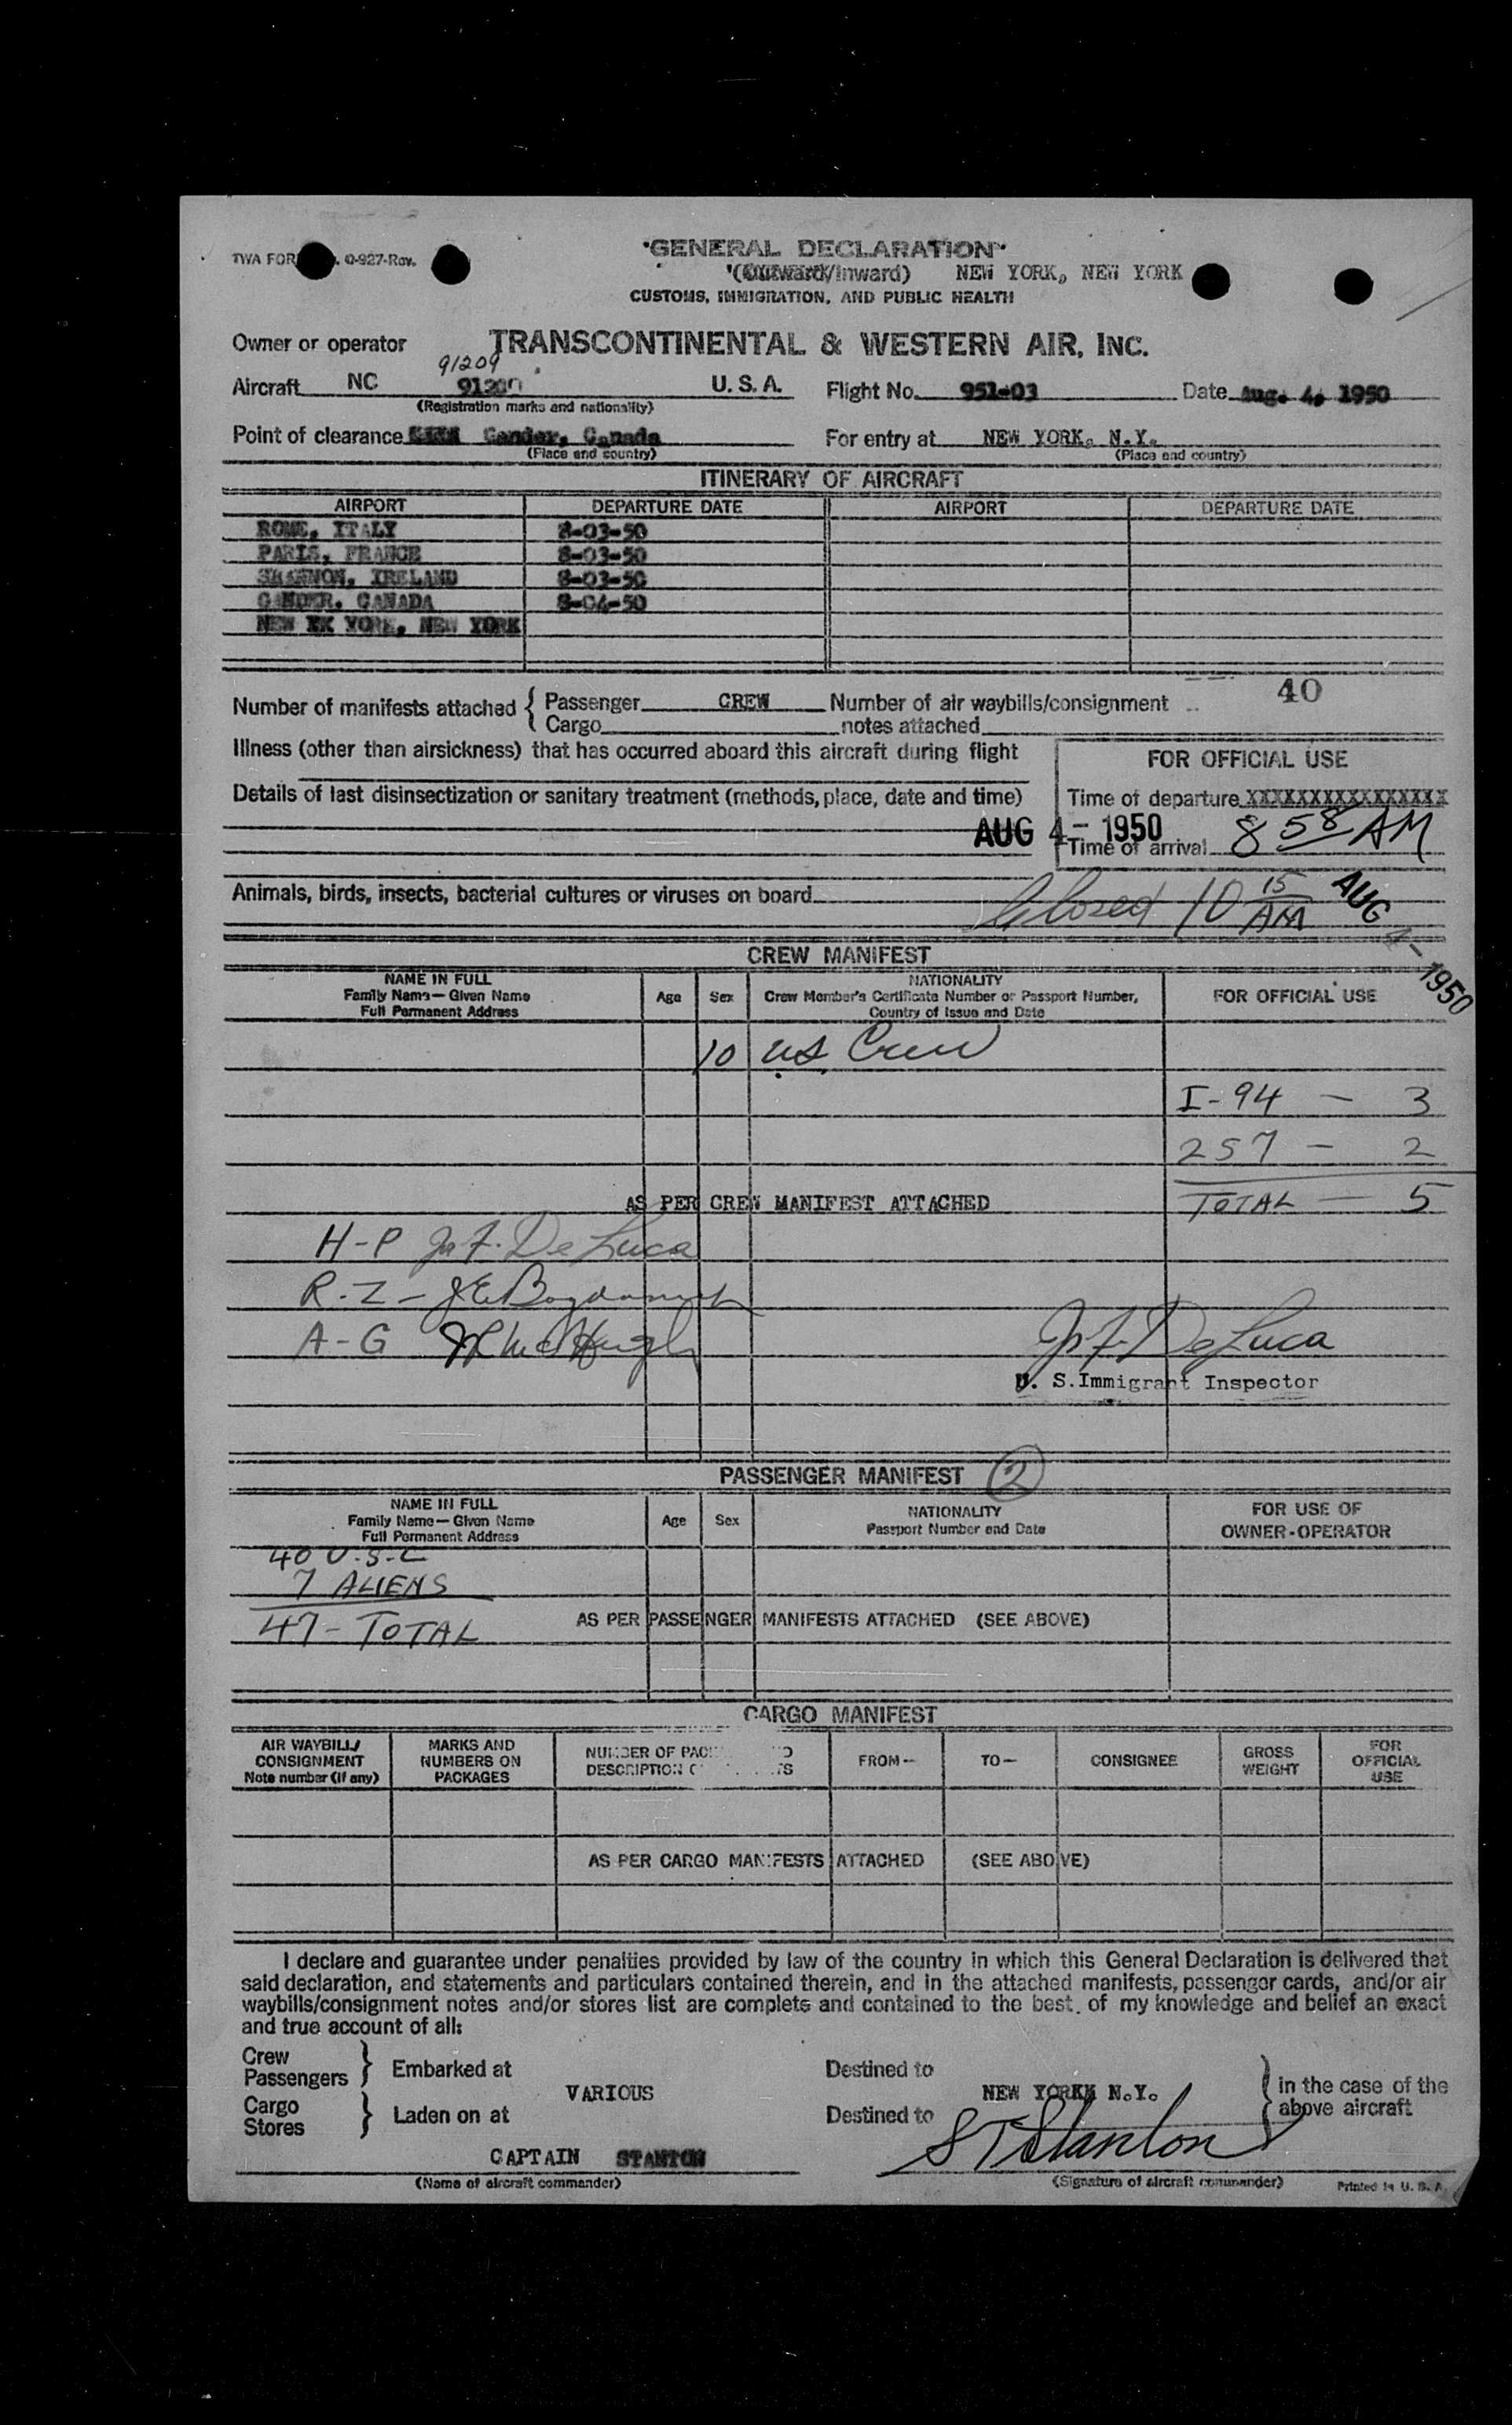 TWA FOR . O-927-Rev.
"GENERAL DECLARATION"
(Outward/Inward) NEW YORK, NEW YORK
CUSTOMS, IMMIGRATION, AND PUBLIC HEALTH
Owner or operator TRANSCONTINENTAL & WESTERN AIR, INC.
91209
Aircraft NC U.S.A. Flight No. 951-03 Date Aug. 4, 1950
(Registration marks and nationality)
Point of clearance Gander, Canada For entry at NEW YORK, N.Y.
(Place and country) (Place and country)
ITINERARY OF AIRCRAFT
AIRPORT DEPARTURE DATE AIRPORT DEPARTURE DATE
ROME, ITALY 8-03-50
PARIS, FRANCE 8-03-50
SHANNON, IRELAND 8-03-50
GANDER, CANADA 8-04-50
NEW XX YORK, NEW YORK
40
Number of manifests attached { Passenger CREW Number of air waybills/consignment
Cargo notes attached
Illness (other than airsickness) that has occurred aboard this aircraft during flight
FOR OFFICIAL USE
Details of last disinsectization or sanitary treatment (methods, place, date and time)
Time of departure XXXXXXXXXXXXXXXX
AUG 4 - 1950
Time of arrival 8 58 AM
Animals, birds, insects, bacterial cultures or viruses on board
Closed 10 15 AM
AUG 4 - 1950
CREW MANIFEST
NAME IN FULL
Family Name—Given Name
Full Permanent Address
Age Sex
NATIONALITY
Crew Member's Certificate Number or Passport Number,
Country of Issue and Date
FOR OFFICIAL USE
10 U.S. Crew
I-94 - 3
257 - 2
AS PER CREW MANIFEST ATTACHED TOTAL - 5
H-P De Luca
R-I -
A-G McHugh
De Luca
U. S. Immigrant Inspector
PASSENGER MANIFEST 2
NAME IN FULL
Family Name—Given Name
Full Permanent Address
Age Sex
NATIONALITY
Passport Number and Date
FOR USE OF
OWNER-OPERATOR
40 U.S.C
7 ALIENS
47 - TOTAL AS PER PASSENGER MANIFESTS ATTACHED (SEE ABOVE)
CARGO MANIFEST
AIR WAYBILL/
CONSIGNMENT
Note number (if any)
MARKS AND
NUMBERS ON
PACKAGES
NUMBER OF
DESCRIPTION
FROM—
TO—
CONSIGNEE
GROSS
WEIGHT
FOR
OFFICIAL
USE
AS PER CARGO MANIFESTS ATTACHED (SEE ABOVE)
I declare and guarantee under penalties provided by law of the country in which this General Declaration is delivered that
said declaration, and statements and particulars contained therein, and in the attached manifests, passenger cards, and/or air
waybills/consignment notes and/or stores list are complete and contained to the best of my knowledge and belief an exact
and true account of all:
Crew
Passengers } Embarked at Destined to
VARIOUS NEW YORK N.Y.
Cargo
Stores } Laden on at Destined to
} in the case of the
above aircraft
CAPTAIN STANTON ST Stanton
(Name of aircraft commander) (Signature of aircraft commander) Printed in U. S. A.